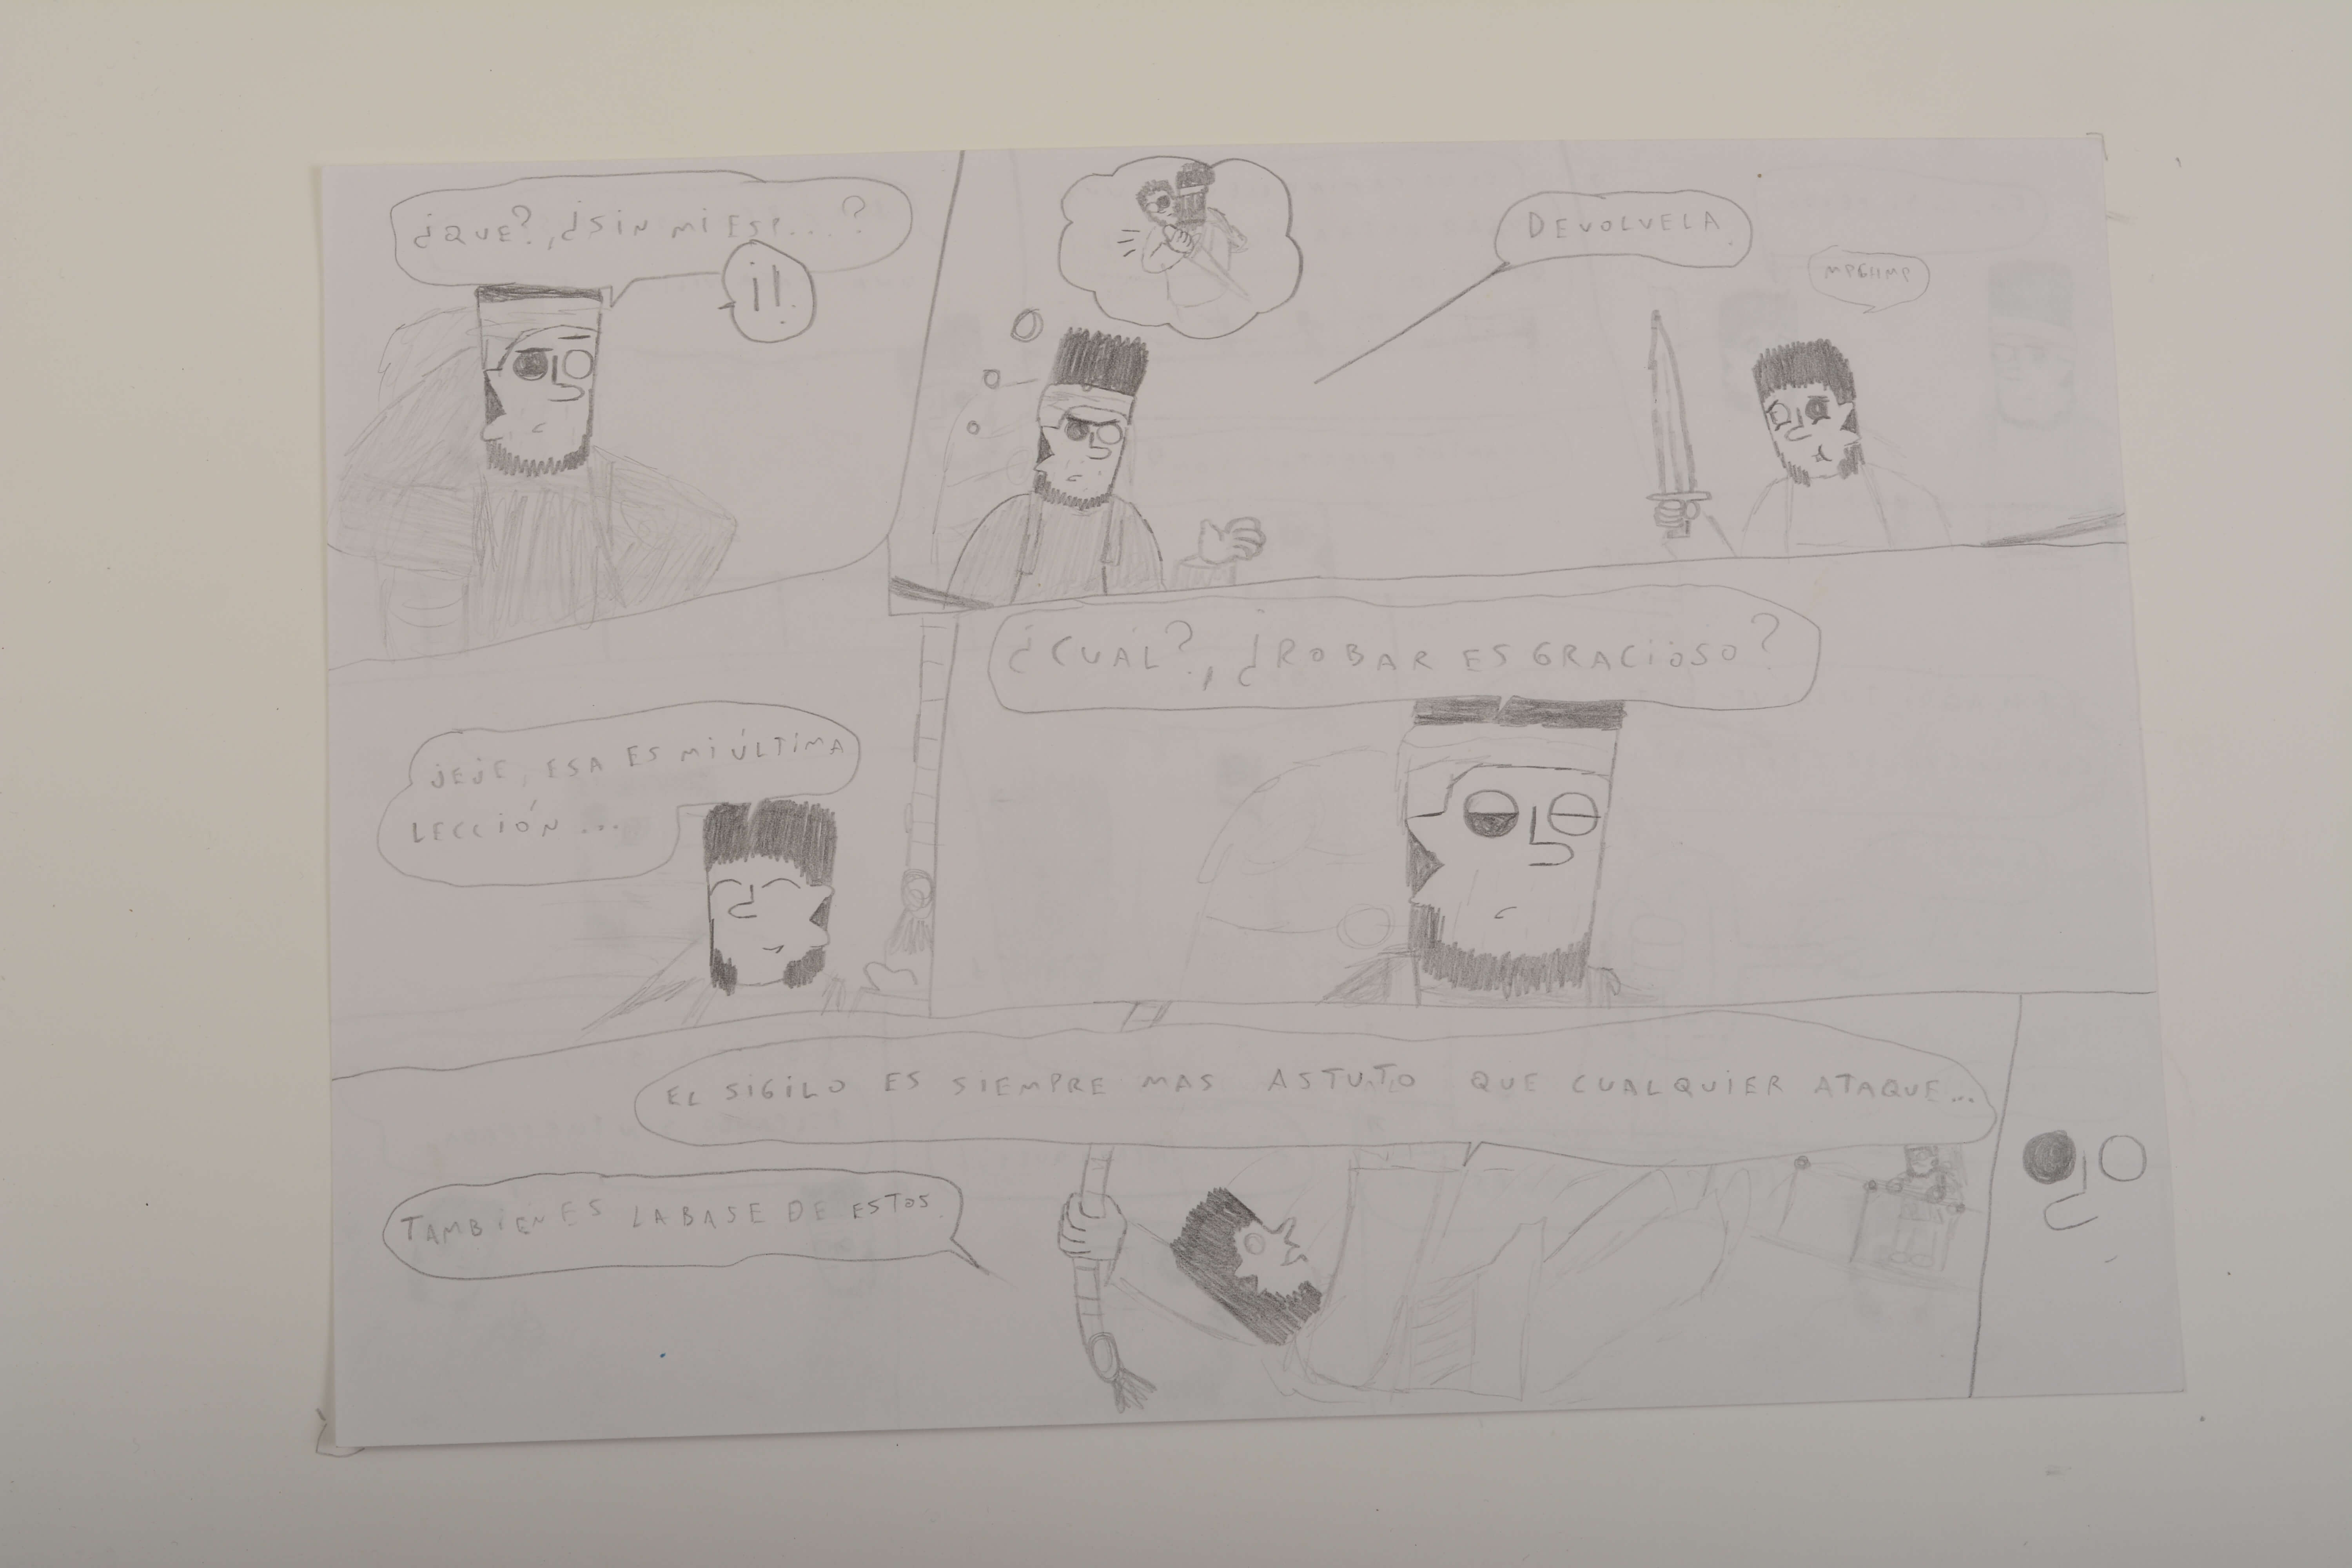 ¿QUE?, ¿SIN MI ESP...?
¡!.
DEVOLVELA.
JEJE, ESA ES MI ÚLTIMA
LECCIÓN...
¿CUÁL?, ¿ROBAR ES GRACIOSO?
EL SIGILO ES SIEMPRE MAS ASTUTO QUE CUALQUIER ATAQUE...
TAMBIEN ES LA BASE DE ESTOS.